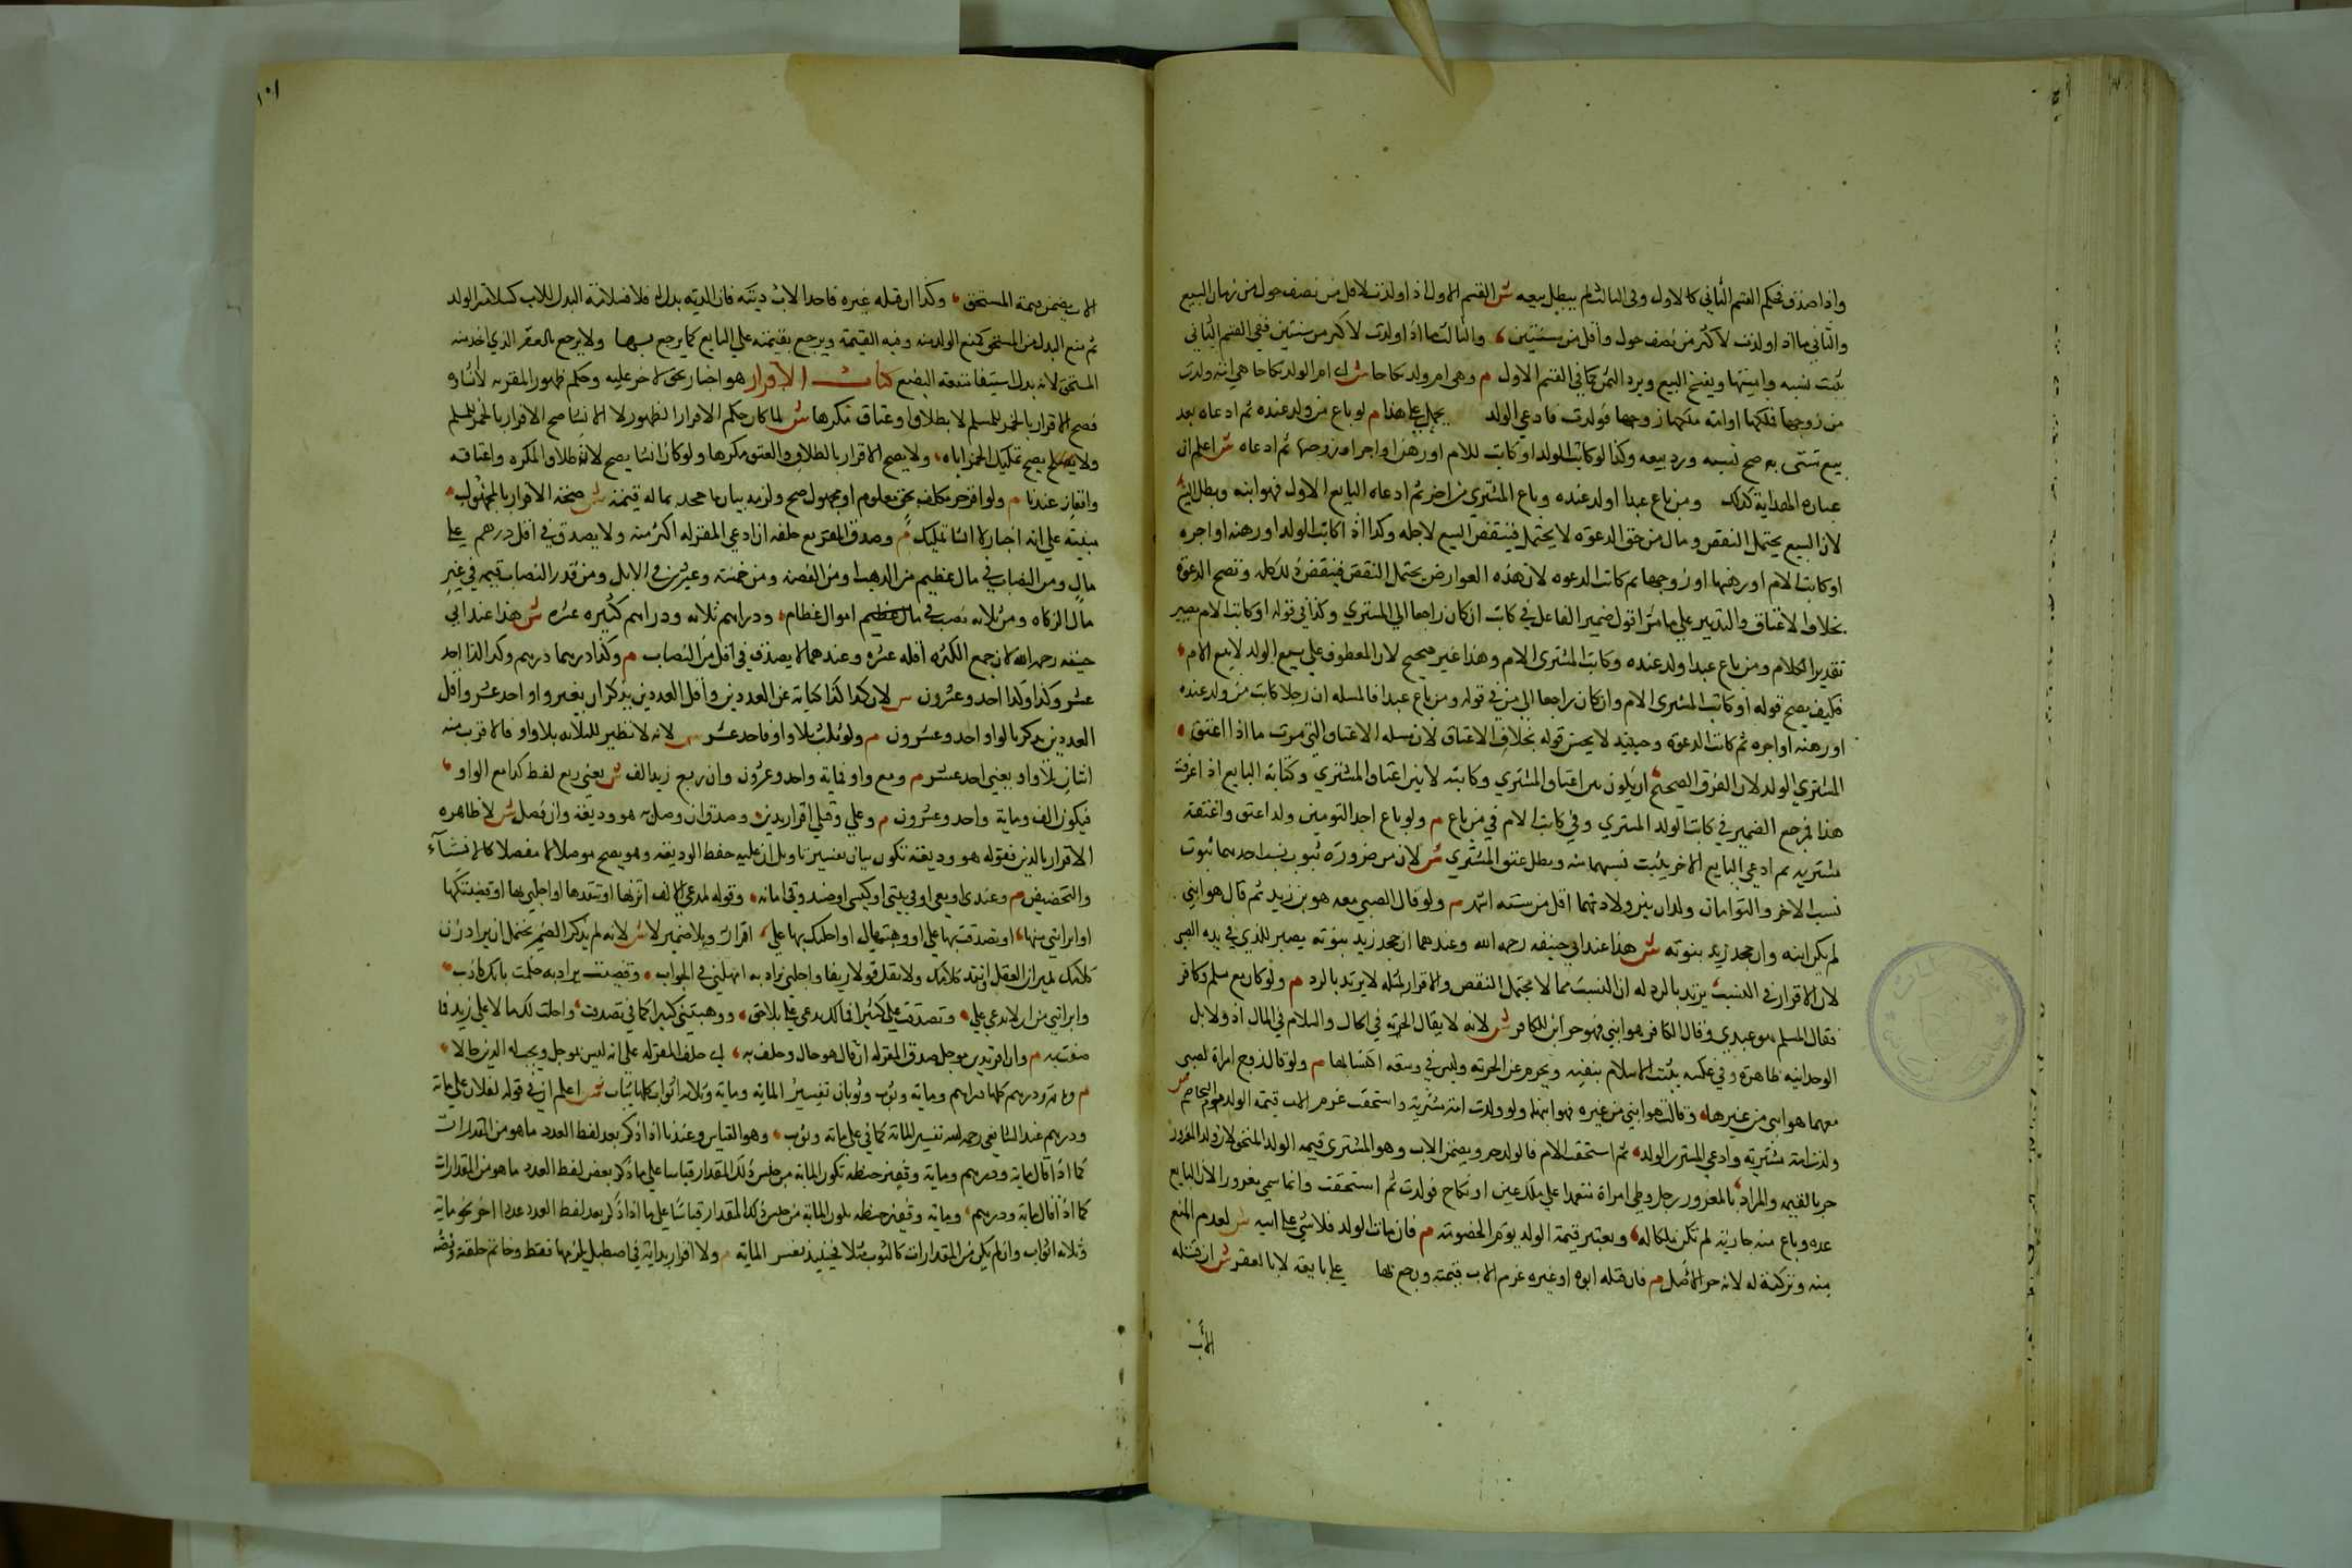 واذا صدق فحكم القسم الثاني كالاول وفى الثالث لم يبطل بيعه ش القسم الاول اذا ولدت لاقل من نصف حول من زمان البيع
والثاني ما اذا ولدت لاكثر من نصف حول واقل من سنتين والثالث ما اذا ولدت لاكثر من سنتين ففي القسم الثاني
يثبت نسبه واميتها ويفسخ البيع ويرد الثمن كما في القسم الاول م وهى ام ولد نكاحا ش اى ام الولد نكاحا هي امة ولدت
من زوجها فملكها او امة ملكها زوجها فولدت فادعي الولد يحمل على هذا م لو باع من ولد عنده ثم ادعاه بعد
بيع مشتريه صح نسبه ورد بيعه وكذا لو كاتب الولد او كاتب للام او رهن او اجر او زوجها ثم ادعاه ش اعلم ان
عبارة الهداية كذلك ومن باع عبدا ولد عنده وباع المشتري من اخر ثم ادعاه البايع الاول فهو ابنه وبطل البيع
لان البيع يحتمل النقض وماله من حق الدعوه لا يحتمل فينقض البيع لاجله وكذا اذا كاتب الولد او رهنه او اجره
او كاتب الام او رهنها او زوجها ثم كانت الدعوه لان هذه العوارض يحتمل النقض فينقض ذلك كله وتصح الدعوة
بخلاف الاعتاق والتدبير على ما مر اقول ضمير الفاعل في كاتب ان كان راجعا الي المشتري وكذا في قوله او كاتب الام يصير
تقدير الكلام ومن باع عبدا ولد عنده وكاتب المشترى الام وهذا غير صحيح لان المعطوف على بيع الولد لا بيع الام
فكيف يصح قوله او كاتب المشترى الام وان كان راجعا الي من في قوله ومن باع عبدا فالمسله ان رجلا كاتب من ولد عنده
او رهنه او اجره ثم كانت الدعوة وحينيذ لا يحسن قوله بخلاف الاعتاق لان مسله الاعتاق التي مرت ما اذا اعتق
المشتري الولد لان الفرق الصحيح ان يكون بين اعتاق المشتري وكتابته لا بين اعتاق المشتري وكتابة البايع اذا عرفت
هذا فمرجع الضمير في كاتب الولد المشتري وفي كاتب الام في من باع م ولو باع احد التومين ولدا عتق واعتقه
مشتريه ثم ادعي البايع الاخر يثبت نسبهما منه وبطل عتق المشتري ش لان من ضرورة ثبوت نسب احدهما ثبوت
نسب الاخر والتوامان ولدان بين ولادتهما اقل من ستة اشهر م ولو قال الصبي معه هو بن زيد ثم قال هو ابني
لم يكن ابنه وان جحد زيد بنوته ش هذا عند ابي حنيفه رحمه الله وعندهما ان جحد زيد بنوته يصير للذي في يده الصبى
لان الاقرار في النسب يرتد بالرد له ان النسب مما لا يحتمل النقض والاقرار بمثله لا يرتد بالرد م ولو كان مع مسلم وكافر
فقال المسلم هو عبدي وقال الكافر هو ابني فهو حر ابن للكافر ش لانه لا يقال الحرية في الحال والاسلام في المال اذ دلايل
الوحدانيه ظاهرة وفي عكسه يثبت الاسلام بنفسه ويحرم عن الحرية وليس في وسعه اكتسابها م ولو قال زوج امراة لصبي
معهما هو ابني من غيرها وقالت هو ابني من غيره فهو ابنهما ولو ولدت امة مشترية واستحقت غرم الاب قيمة الولد
ولدت امة مشترية وادعي المشتري الولد ثم استحقت الام فالولد حر ويضمن الاب وهو المشترى قيمه الولد المستحق لان ولد المغرور
حر بالقيمه والمراد بالمغرور رجل وطي امراة معتمدا علي ملك يمين او نكاح فولدت ثم استحقت وانما سمي مغرورا لان البايع
غره وباع منه جارية لم تكن ملكا له ويعتبر قيمة الولد يوم الخصومة م فان مات الولد فلا شي على ابيه ش لعدم المنع
منه وتركته له لانه حر الاصل م فان قتله ابوه او غيره غرم الاب قيمته ورجع بها على بايعه لا بالعقر ش ان قتله
الاب
١٠١
الاب يضمن قيمة المستحق وكذا ان قتله غيره فاخذ الاب ديته فان الدية بدله فلا سلامة البدل للاب كسلامة الولد
ثم منع البدل من المستحق كمنع الولد منه وفيه القيمة ويرجع بقيمته علي البايع كما يرجع بها ولا يرجع بالعقر الذي اخذ منه
المستحق لانه بدل استيفا منفعة البضع كتاب الاقرار هو اخبار بحق لاخر عليه وحكمه ظهور المقر به لا انشاوه
فصح الاقرار بالخمر للمسلم لا بطلاق او عتاق مكرها ش لما كان حكم الاقرار الظهور لا الانشا صح الاقرار بالخمر للمسلم
ولا يصح تمليك الخمر اياه ولا يصح الاقرار بالطلاق والعتق مكرها ولو كان انشا يصح لان طلاق المكره واعتاقه
واقعان عندنا م ولو اقر حر مكلف بحق معلوم او مجهول صح ولزمه بيان ما جهله بما له قيمة ش صحة الاقرار بالمجهول
مبنية علي انه اخبار لا انشا تمليك م وصدق المقر مع حلفه ان ادعي المقر له اكثر منه ولا يصدق في اقل درهم على
مال ومن النصاب في مال عظيم من الذهب او من الفضه ومن خمسة وعشرين في الابل ومن قدر النصاب قيمه في غير
مال الزكاه ومن ثلاثة نصب في اموال عظام ودراهم ثلاثه ودراهم كثيره عشره ش هذا عند ابي
حنيفه رحمه الله لان جمع الكثره اقله عشره وعندهما لا يصدق في اقل من النصاب م وكذا درهما درهم وكذا كذا احد
عشر وكذا وكذا احد وعشرون ش لان كذا كذا كناية عن العددين واقل العددين يذكران بغير واو احد عشر واقل
العددين يذكر بالواو احد وعشرون م ولو ثلث بلا واو فاحد عشر ش لانه لا نظير للثلاثه بلا واو فالاقرب منه
اثنان بلا واو يعني احد عشر م ومع واو فماية واحد وعشرون وان ربع زيد الف ش يعني ربع لفظ كذا مع الواو
فيكون الف وماية واحد وعشرون م وعلي وقبلي اقرار بدين وصدق ان وصل به هو وديعة وان فصل لا ش لان ظاهره
الاقرار بالدين فقوله هو وديعة تكون بيان تغيير بتاويل ان عليه حفظ الوديعة وهو يصح موصولا لا مفصلا كالاستثناء
والتخصيص م وعندى او معي او في بيتي او كيسي او صندوقي امانه وقوله لمدعي الالف اتزنها او انتقدها او اجلني بها او قضيتكها
او ابراتني منها او تصدقت بها علي او وهبتها لي او احلتك بها علي اقرار وبلا ضمير لا ش لانه لم يذكر الضمير يحتمل ان يراد زن
كلامك بميزان العقل او انتقد كلامك ولا تقل قولا زيفا واجلني يراد به امهلني في الجواب وقضيت يراد به حكمت بانك كاذب
وابراتني من ان لا تدعي علي وتصدقت علي كثيرا فما لك تدعي علي بلا حق ووهبتني كثيرا كما في تصدقت واحلت لك مالا علي زيد فا
م وان اقر بدين موجل صدق المقر له ان قال هو حال وحلف به اى حلف المقر له علي انه ليس بموجل ويجب له الدين حالا
م وماية ودرهم كلها دراهم وماية وثوب وثوبان تفسير الماية وماية وثلاثه اثواب كلها ثياب ش اعلم ان في قوله لفلان علي ماية
ودرهم عند الشافعي رحمه الله تفسير الماية كما في علي ماية وثوب وهو القياس وعندنا اذا ذكر بعد لفظ العدد ما هو من المقدرات
كما اذا قال ماية ودرهم وماية وقفيز حنطه تكون الماية من جنس ذلك المقدار قياسا علي ما ذكر بعض لفظ العدد ما هو من المقدارات
كما اذا قال ماية ودرهم وماية وقفيز حنطه يكون الماية من جنس ذلك المقدار قياسا على ما اذا ذكر بعد لفظ العدد عددا اخر نحو ماية
وثلاثه اثواب وان لم يكن من المقدارات كالثوب مثلا فحينيذ تفسر الماية م ولا اقرار بداية في اصطبل يلزمها فقط وخاتم حلقته وفصه